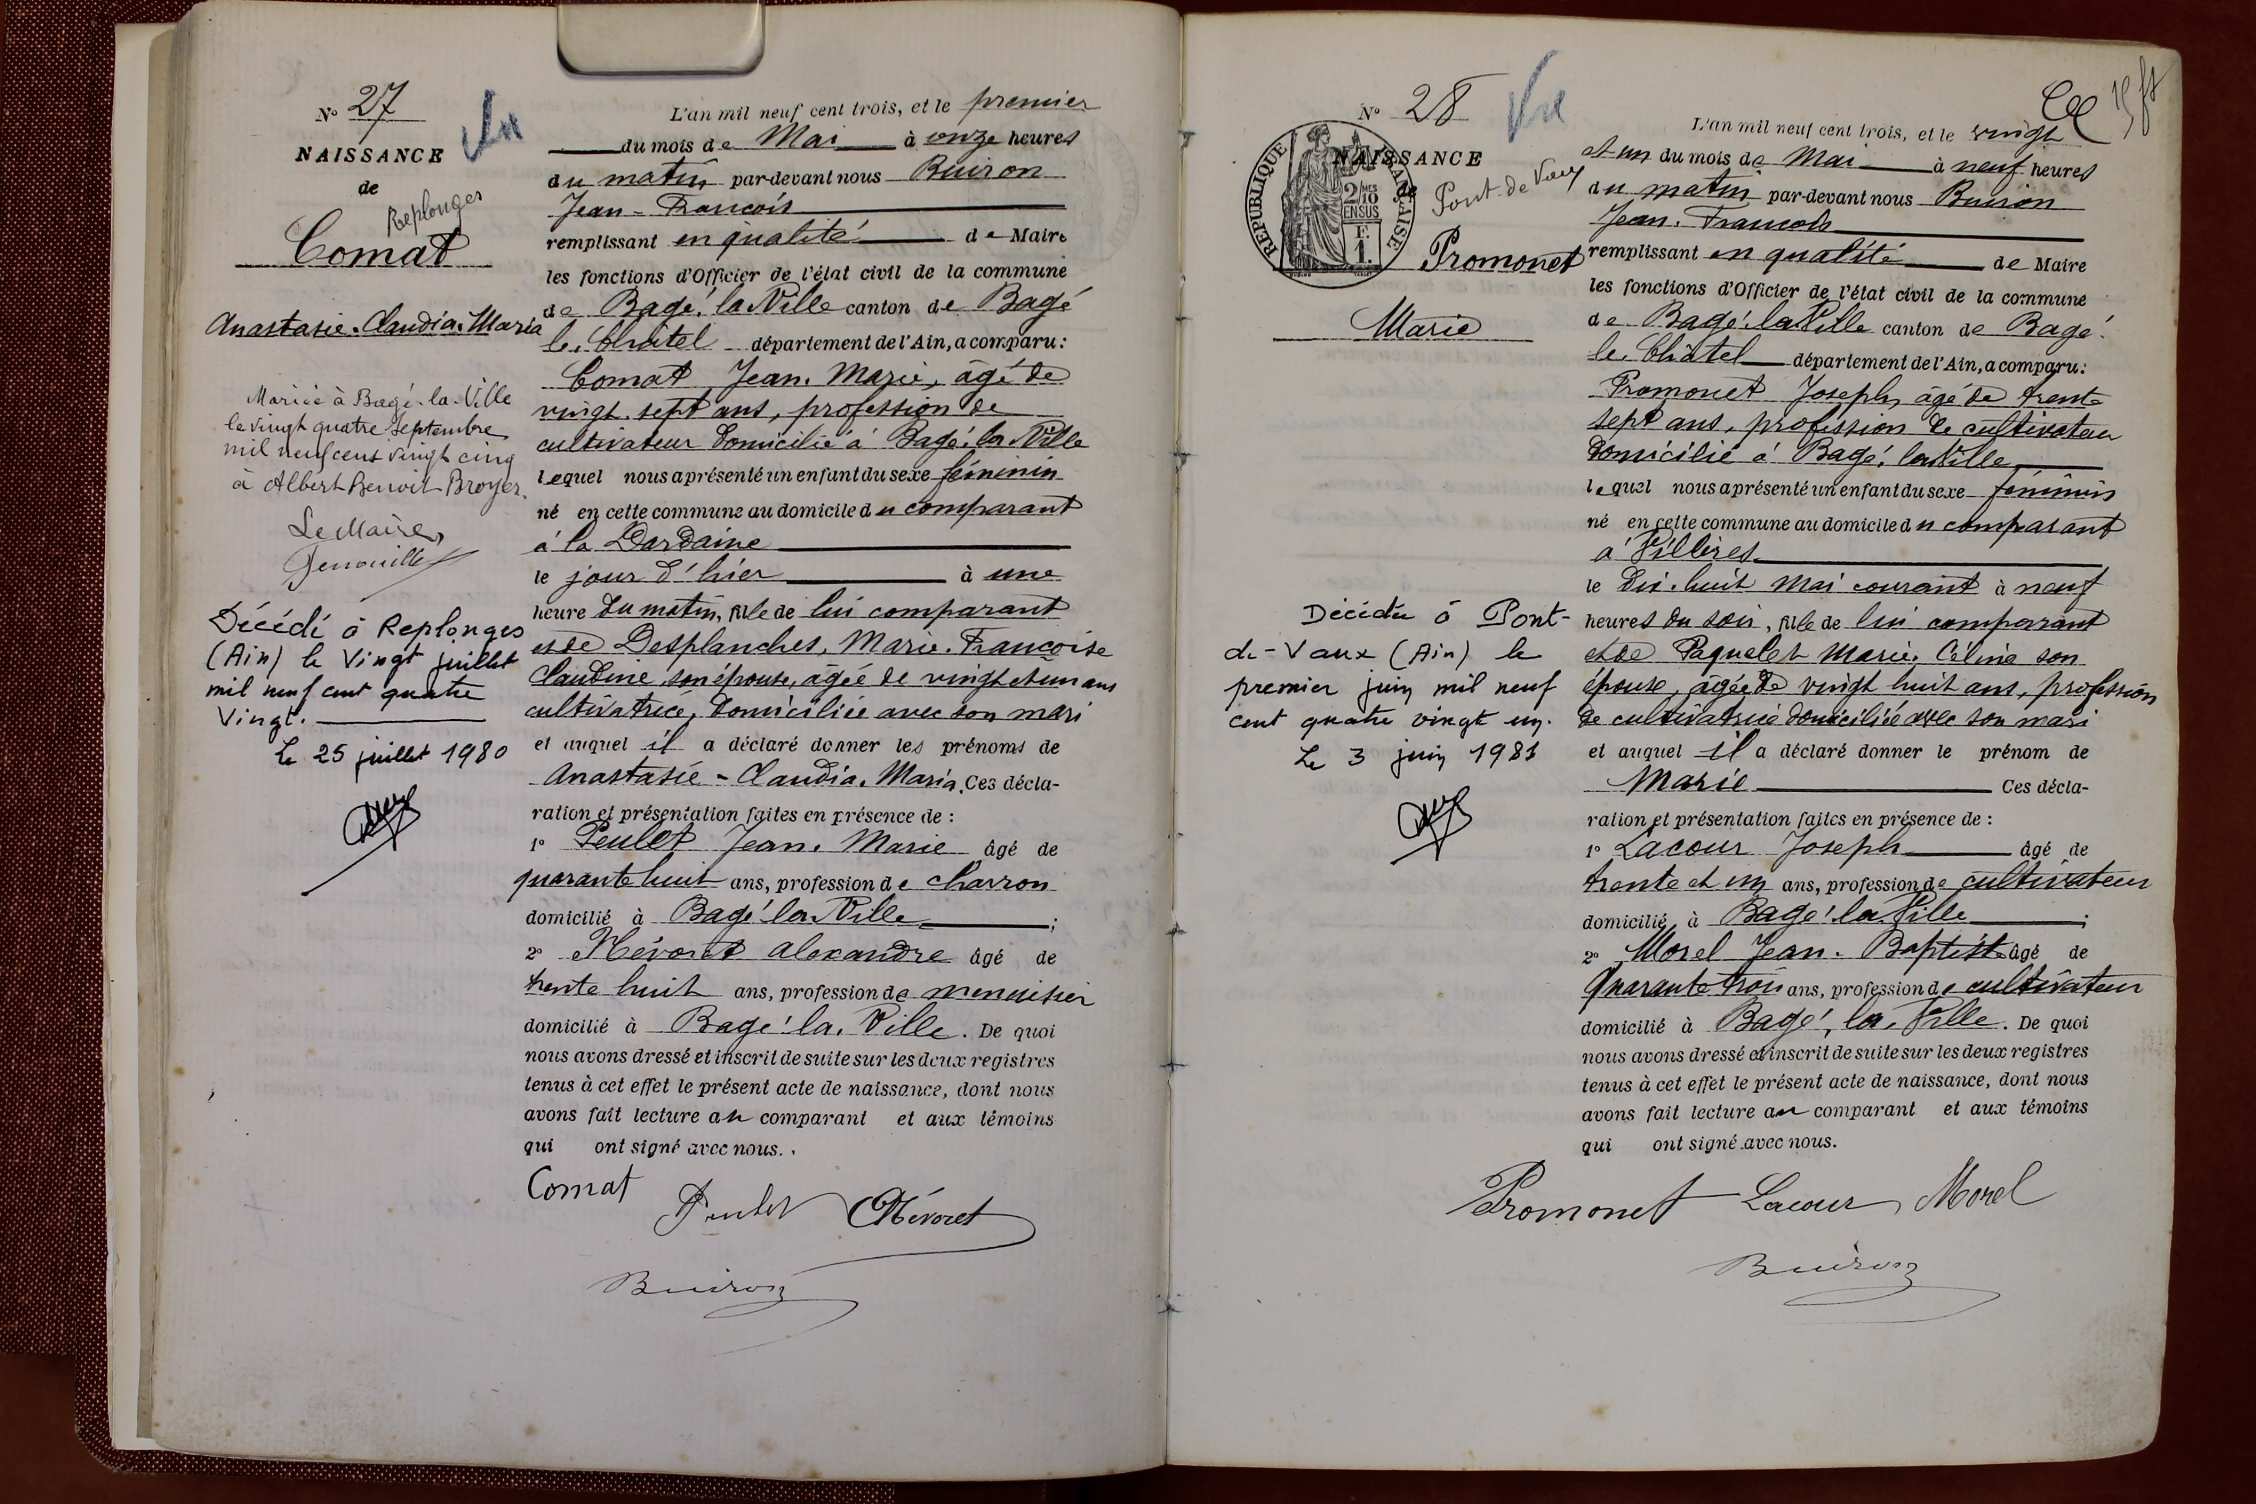 N° 27
Vu
NAISSANCE
de
Replonges
Comat
Anastasie. Claudia. Maria
Mariée à Bagé-la-Ville
le vingt quatre septembre
mil neuf cent vingt cinq
à Albert Benoit Broyer.
Le Maire,
Décédé à Replonges
(Ain) le Vingt juillet
mil neuf cent quatre
Vingt.
Le 25 juillet 1980
L'an mil neuf cent trois, et le premier
du mois de Mai à onze heures
du matin par-devant nous Buiron
Jean-François
remplissant en qualité de Maire
les fonctions d'Officier de l'état civil de la commune
de Bagé. la Ville canton de Bagé
le. Châtel département de l'Ain, a comparu:
Comat Jean. Marie, âgé de
vingt. sept ans, profession de
cultivateur domicilié à Bagé. la Ville
lequel nous a présenté un enfant du sexe féminin
né en cette commune au domicile du comparant
à la Dardaine
le jour d'hier à une
heure du matin, fille de lui comparant
et de Desplanches, Marie. Françoise
Claudine son épouse, âgée de vingt et un ans
cultivatrice, domiciliée avec son mari
et auquel il a déclaré donner les prénoms de
Anastasie - Claudia. Maria. Ces décla-
ration et présentation faites en présence de :
1° Peulet Jean. Marie âgé de
quarante huit ans, profession de charron
domicilié à Bagé la Ville ;
2° Névoret Alexandre âgé de
trente huit ans, profession de menuisier
domicilié à Bagé la. Ville. De quoi
nous avons dressé et inscrit de suite sur les deux registres
tenus à cet effet le présent acte de naissance, dont nous
avons fait lecture au comparant et aux témoins
qui ont signé avec nous.
Comat Peulet Névoret
Buiron
N° 28
Vu
RÉPUBLIQUE FRANÇAISE
2/10 EN SUS
F. 1.
NAISSANCE
de
Pont de Vaux
Promonet
Marie
Décédée à Pont-
de-Vaux (Ain) le
premier juin mil neuf
cent quatre vingt un.
Le 3 juin 1981
L'an mil neuf cent trois, et le vingt
et un du mois de Mai à neuf heures
du matin par-devant nous Buiron
Jean. François
remplissant en qualité de Maire
les fonctions d'Officier de l'état civil de la commune
de Bagé. la Ville canton de Bagé.
le. Châtel département de l'Ain, a comparu:
Promonet Joseph, âgé de trente
sept ans, profession de cultivateur
domicilié à Bagé. la Ville
lequel nous a présenté un enfant du sexe féminin
né en cette commune au domicile du comparant
à Villères
le dix. huit Mai courant à neuf
heures du soir, fille de lui comparant
et de Paquelet Marie. Céline son
épouse, âgée de vingt huit ans, profession
de cultivatrice domiciliée avec son mari
et auquel il a déclaré donner le prénom de
Marie Ces décla-
ration et présentation faites en présence de :
1° Lacour Joseph âgé de
trente et un ans, profession de cultivateur
domicilié à Bagé. la Ville ;
2° Morel Jean. Baptiste âgé de
Quarante trois ans, profession de cultivateur
domicilié à Bagé. la. Ville. De quoi
nous avons dressé et inscrit de suite sur les deux registres
tenus à cet effet le présent acte de naissance, dont nous
avons fait lecture au comparant et aux témoins
qui ont signé avec nous.
Promonet Lacour Morel
Buiron